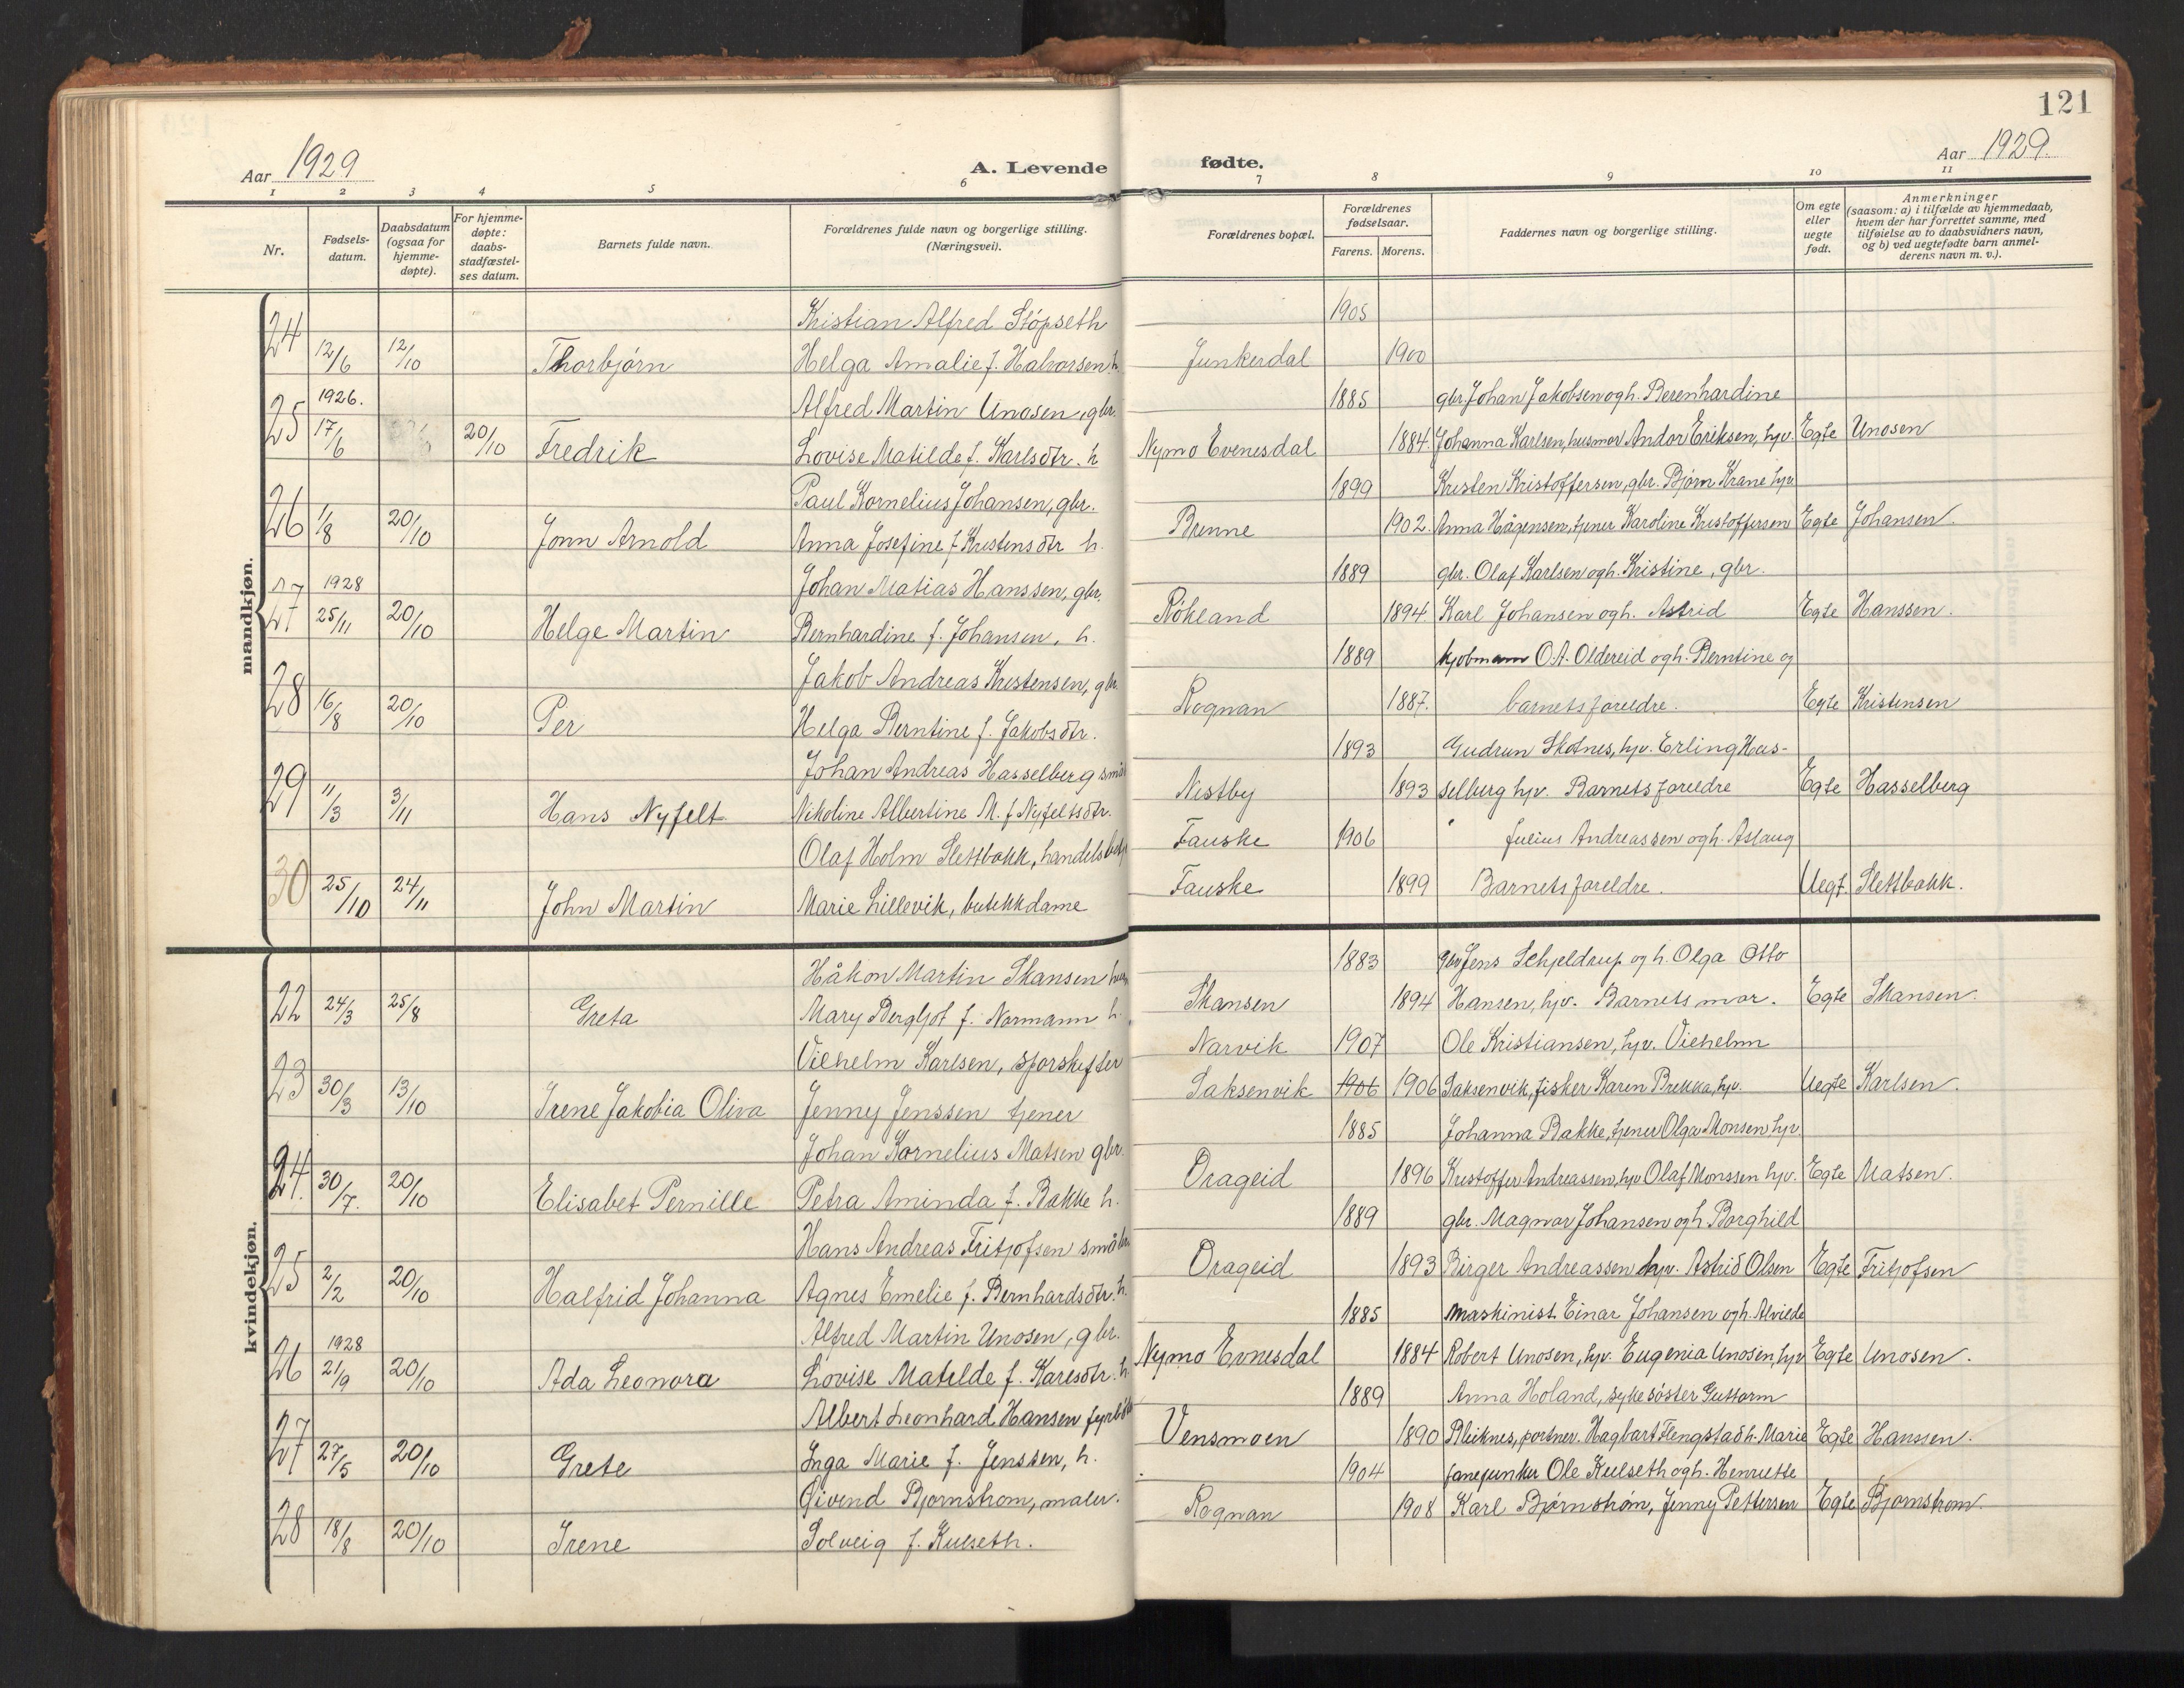 121
Aar 1929
A. Levende
fødte.
Aar 1929.
1 2 3 4 5 6 7 8 9 10 11
Nr.
Fødsels-
datum.
Daabsdatum
(ogsaa for
hjemme-
døpte).
For hjemme-
døpte:
daabs-
stadfæstel-
ses datum.
Barnets fulde navn.
Forældrenes fulde navn og borgerlige stilling.
(Næringsvei).
Forældrenes bopæl.
Forældrenes
fødselsaar.
Farens. Morens.
Faddernes navn og borgerlige stilling.
Om egte
eller
uegte
født.
Anmerkninger
(saasom: a) i tilfælde av hjemmedaab,
hvem der har forrettet samme, med
tilføielse av to daabsvidners navn,
og b) ved uegtefødte barn anmel-
derens navn m. v.).
mandkjøn.
Kristian Alfred Støpseth 1905
24 12/6 12/10 Thorbjørn Helga Amalie f. Halvorsen h. Junkerdal 1900
1926. Alfred Martin Unosen, gbr. 1885 gbr. Johan Jakobsen og h. Berenhardine
25 17/6 20/10 Fredrik Lovise Matilde f. Karlsdtr. h Nymo Evenesdal 1884. Johanna Karlsen, husmor Andor Eriksen, hjv. Egte Unosen
Paul Kornelius Johansen, gbr. 1899 Kristen Kristoffersen, gbr. Bjørn Krane hjv
26 1/8 20/10 Jonn Arnold Anna Josefine f. Kristensdtr h. Brenne 1902. Anna Hågensen, tjener Karoline Kristoffersen Egte Johansen.
1928 Johan Matias Hanssen, gbr. 1889 gbr. Olaf Karlsen og h. Kristine, gbr.
27 25/11 20/10 Helge Martin Bernhardine f. Johansen, h. Røkland 1894 Karl Johansen og h. Astrid Egte Hanssen.
Jakob Andreas Kristensen, gbr. 1889 kjøbmann O.A. Oldereid og h. Berntine og
28 16/8 20/10 Per Helga Berntine f. Jakobsdtr. Rognan 1887. barnets foreldre. Egte Kristensen
Johan Andreas Hasselberg små 1893 Gudrun Skotnes, hjv. Erling Has-
29 11/3 3/11 Hans Nyfelt Nikoline Albertine M. f Nyfeltsdtr. Nestby 1893 selberg hjv. Barnets foreldre Egte Hasselberg
Olaf Holm Slettbakk, handelsbetj Fauske 1906 Julius Andreassen og h. Aslaug
30 25/10 24/11 John Martin Marie Lillevik, butikkdame Fauske 1899 Barnets foreldre. Uegt. Slettbakk.
kvindekjøn.
Håkon Martin Skansen 1883 gbr Jens Schjeldrup og h. Olga Otto
22 24/3 25/8 Greta Mary Bergljot f. Normann h. Skansen 1894 Hansen, hjv. Barnets mor. Egte Skansen.
Vilhelm Karlsen, sporskifter Narvik 1907 Ole Kristiansen, hjv. Vilhelm
23 30/3 13/10 Irene Jakobia Oliva Jenny Jenssen tjener Saksenvik 1906 1906 Saksenvik, fisker Karen Brekka, hjv. Uegte Karlsen.
Johan Kornelius Matsen gbr. 1885 Johanna Bakke, tjener Olga Monsen hjv.
24. 30/7. 20/10 Elisabet Pernille Petra Aminda f. Bakke h. Drageid 1896 Kristoffer Andreassen, hjv Olaf Monssen hjv. Egte Matsen.
Hans Andreas Fritjofsen småbr 1889 gbr. Magnar Johansen og h. Borghild
25 2/2 20/10 Halfrid Johanna Agnes Emelie f. Bernhardsdtr. h. Drageid 1893 Birger Andreassen hjv. Astrid Olsen Egte Fritjofsen
1928 Alfred Martin Unosen, gbr. 1885 maskinist Einar Johansen og h. Alvilde
26 21/9 20/10 Ada Leonora Lovise Matilde f. Karlsdtr. h. Nymo Evnesdal 1884 Robert Unosen, hjv. Eugenia Unosen, hjv Egte Unosen.
Albert Leonhard Hansen fyrbøt 1889 Anna Holand, sykesøster Guttorm
27 27/5 20/10 Grete Inga Marie f. Jenssen, h. Vensmoen 1890 Bleiknes, portner. Hagbart Flengstad h. Marie Egte Hanssen.
Øivend Bjørnstrom, maler. 1904 fanejunker Ole Kulseth og h. Henriette
28 18/8 20/10 Irene Solveig f. Kulseth. Rognan 1908 Karl Bjørnstrøm, Jenny Pettersen Egte Bjørnstrøm.